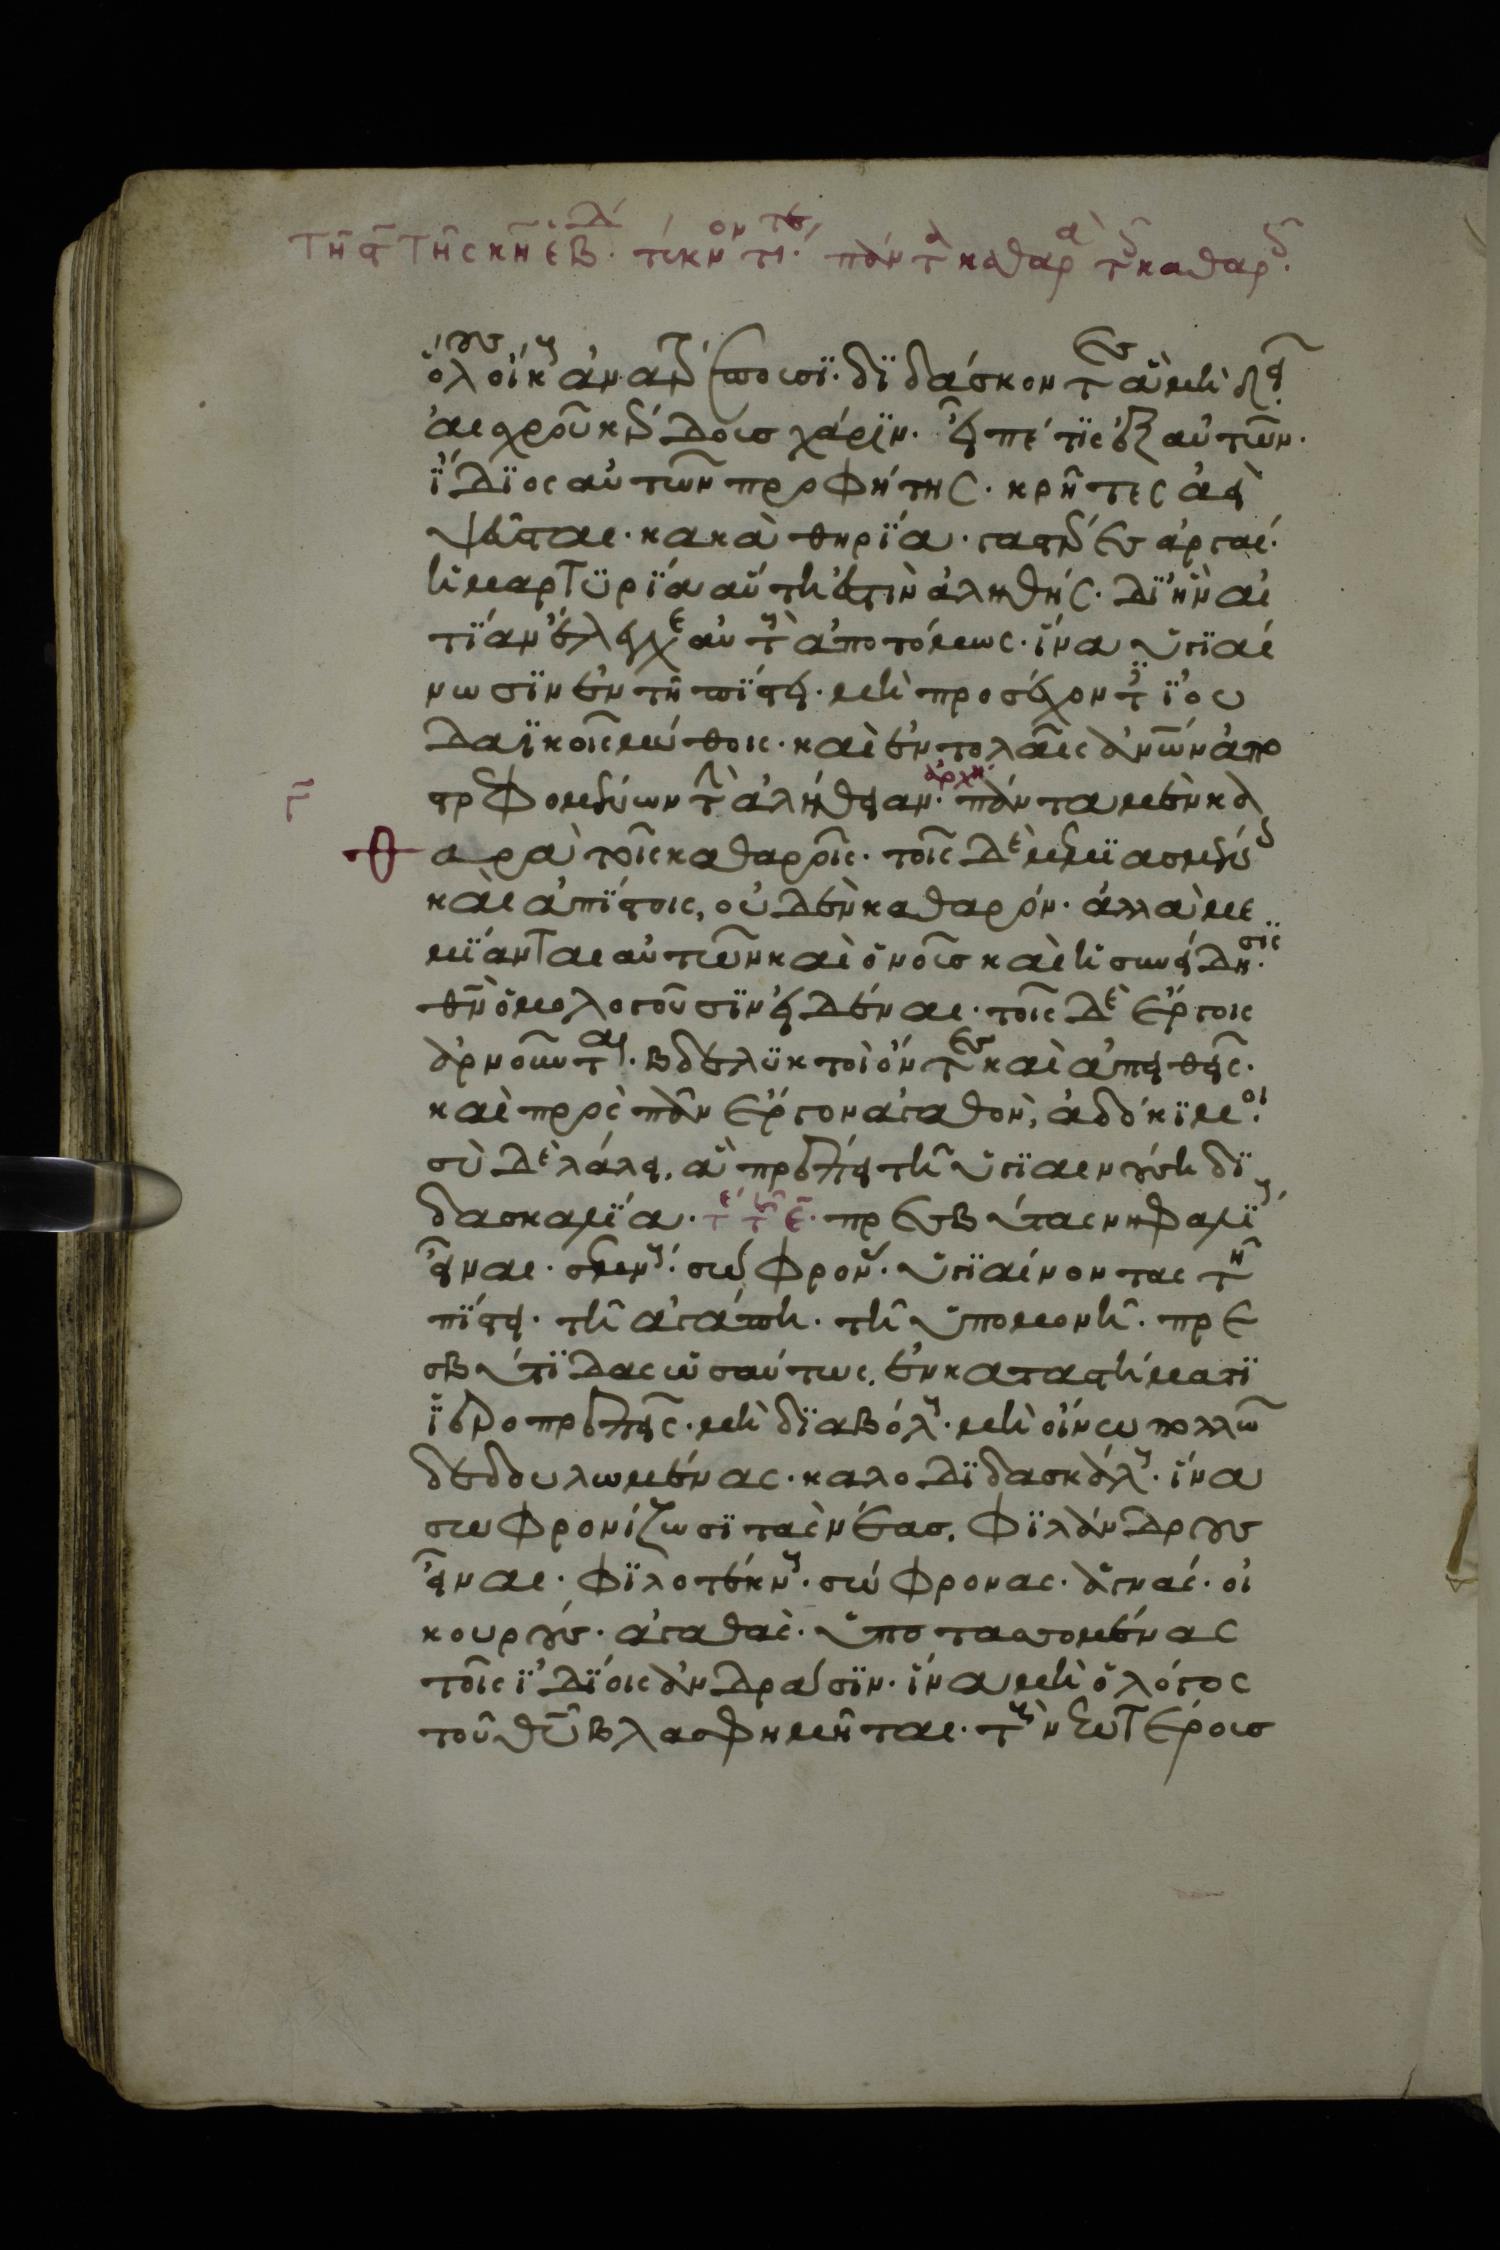 τῇ ϛ τῆς κη ἑβδ. τέκνον τίτε. πάντα καθαρὰ τοῖς καθαροῖς.
ὅλους οἴκους ἀνατρέπουσϊ. δϊδάσκοντες ἃ μὴ δεῖ
αἰσχροῦ κέρδους χάρϊν. εἶπέ τϊς ἐξ αὐτῶν.
ἴδϊος αὐτῶν προφήτης. κρῆτες ἀεὶ
ψεῦσται. κακὰ θηρϊα. γαστέρες ἀργαί.
ἡ μαρτϋρϊα αὕτη ἐστὶν ἀληθής. δϊ ἣν αἰ
τϊαν ἔλεγχε αὐτοὺς ἀποτόμως. ἵνα ὑγϊαί
νωσϊν ἐν τῇ πϊστει. μὴ προσέχοντες ϊου
δαϊκοῖς μύθοις. καὶ ἐντολαῖς ἀνῶν ἀπο
στρεφομένων τὴν ἀλήθειαν. ἀρχὴ πάντα μὲν κα
θαρὰ τοῖς καθαροῖς. τοῖς δὲ μεμϊασμένοις
καὶ ἀπϊστοις, οὐδὲν καθαρόν. ἀλλὰ με
μϊανται αὐτῶν καὶ ὁ νοῦς καὶ ἡ συνείδησϊς.
θν ὁμολογοῦσϊν εἰδέναι. τοῖς δὲ ἔργοις
ἀρνοῦνται. βδελϋκτοὶ ὄντες καὶ ἀπειθεῖς.
καὶ πρὸς πᾶν ἔργον ἀγαθὸν, ἀδόκϊμοι.
σὺ δὲ λάλει, ἃ πρέπει τῇ ὑγϊαινούσῃ δϊ
δασκαλϊα. πρεσβύτας νηφαλϊους
εἶναι. σεμνούς. σώφρονας. ὑγϊαίνοντας τῇ
πϊστει. τῇ ἀγάπῃ. τῇ ὑπομονῇ. πρε
σβύτϊδας ὡσαύτως, ἐν καταστήματϊ
ϊεροπρεπεῖς. μὴ δϊαβόλους. μὴ οἴνω πολλῶ
δεδουλωμένας. καλοδϊδασκάλους. ἵνα
σωφρονίζωσϊ τὰς νέας, φϊλάνδρους
εἶναι. φϊλοτέκνους. σώφρονας. ἁγνάς. οἰ
κουρούς. ἀγαθὰς. ὑποτασσομένας
τοῖς ϊδϊοις ἀνδράσϊν. ἵνα μὴ ὁ λόγος
τοῦ θῦ βλασφημῆται. τοὺς νεωτέρους